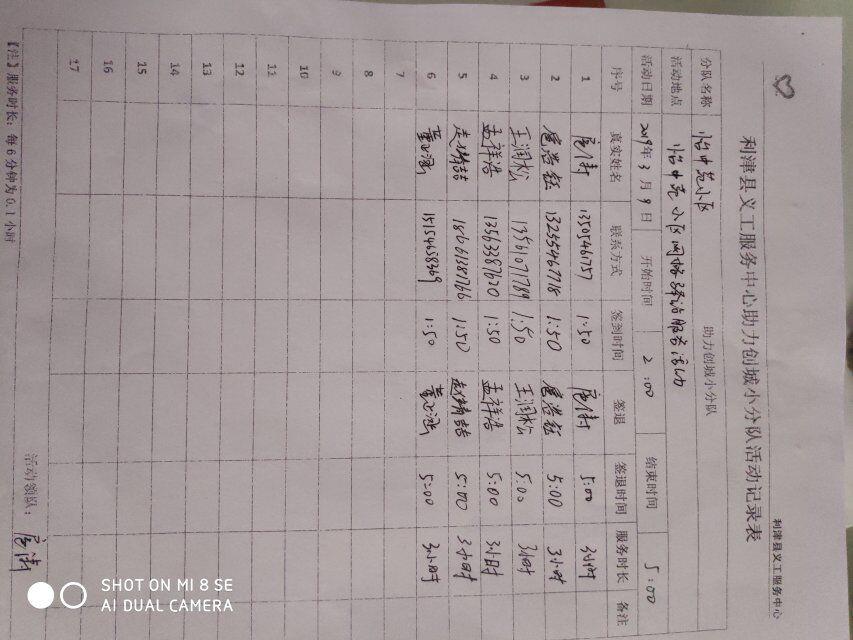 利津县义工服务中心
利津县义工服务中心助力创城小分队活动记录表
分队名称 怡中苑小区 助力创城小分队
活动地点 怡中苑小区网格 活动
活动日期 2019年3月9日 开始时间 2:00 结束时间 5:00
序号 真实姓名 联系方式 签到时间 签退 签退时间 服务时长 备注
1 1:50 5:00 3小时
2 13255467718 1:50 5:00 3小时
3 王润松 13561071789 1:50 王润松 5:00 3小时
4 孟祥浩 13563387620 1:50 孟祥浩 5:00 3小时
5 18661381766 1:50 5:00 3小时
6 15154658369 1:50 5:00 3小时
7
8
9
10
11
12
13
14
15
16
17
【注】服务时长：每6分钟为0.1小时
活动领队：
SHOT ON MI 8 SE
AI DUAL CAMERA